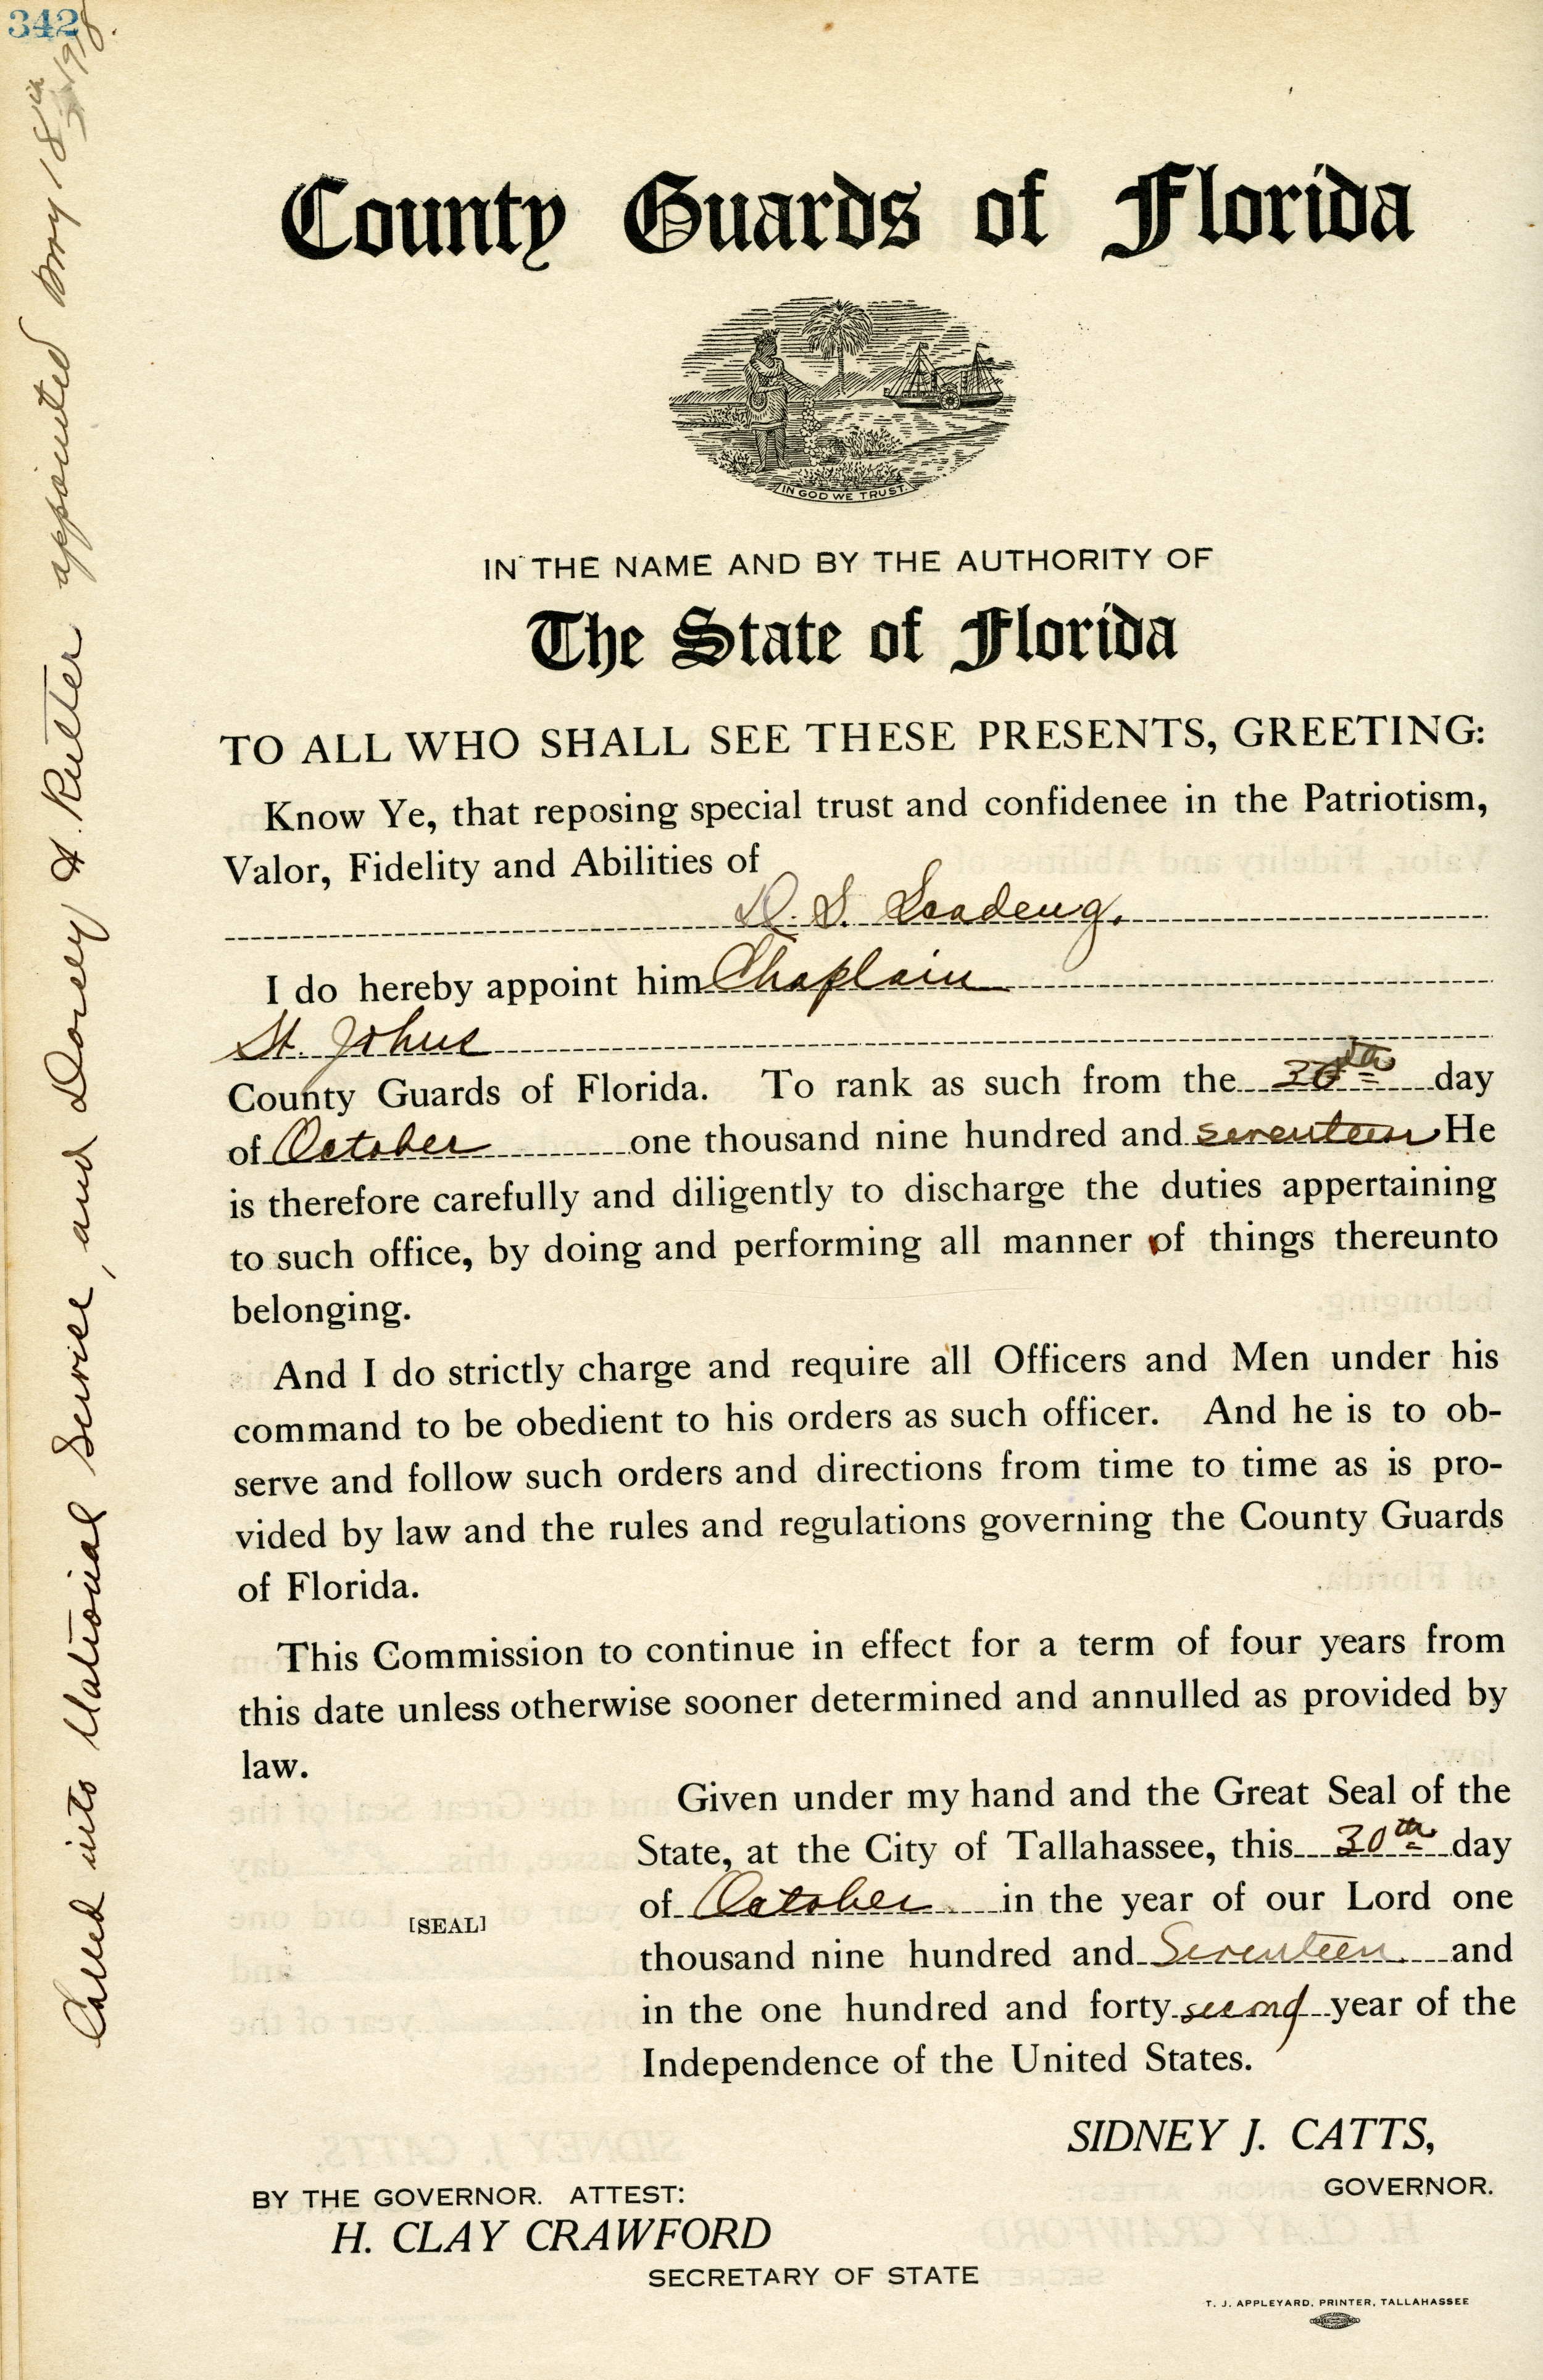 342
County Guards of Florida
IN GOD WE TRUST.
IN THE NAME AND BY THE AUTHORITY OF
The State of Florida
TO ALL WHO SHALL SEE THESE PRESENTS, GREETING:
Know Ye, that reposing special trust and confidenee in the Patriotism,
Valor, Fidelity and Abilities of
I do hereby appoint him Chaplain
St. Johns
County Guards of Florida. To rank as such from the 30th day
of October one thousand nine hundred and seventeen He
is therefore carefully and diligently to discharge the duties appertaining
to such office, by doing and performing all manner of things thereunto
belonging.
And I do strictly charge and require all Officers and Men under his
command to be obedient to his orders as such officer. And he is to ob-
serve and follow such orders and directions from time to time as is pro-
vided by law and the rules and regulations governing the County Guards
of Florida.
This Commission to continue in effect for a term of four years from
this date unless otherwise sooner determined and annulled as provided by
law.
Given under my hand and the Great Seal of the
State, at the City of Tallahassee, this 30th day
of October in the year of our Lord one
[SEAL]
thousand nine hundred and Seventeen and
in the one hundred and forty second year of the
Independence of the United States.
SIDNEY J. CATTS,
GOVERNOR.
BY THE GOVERNOR. ATTEST:
H. CLAY CRAWFORD
SECRETARY OF STATE
T. J. APPLEYARD, PRINTER, TALLAHASSEE
Called into National Service, and Dorsey H. Rutter appointed May 18th 1918.